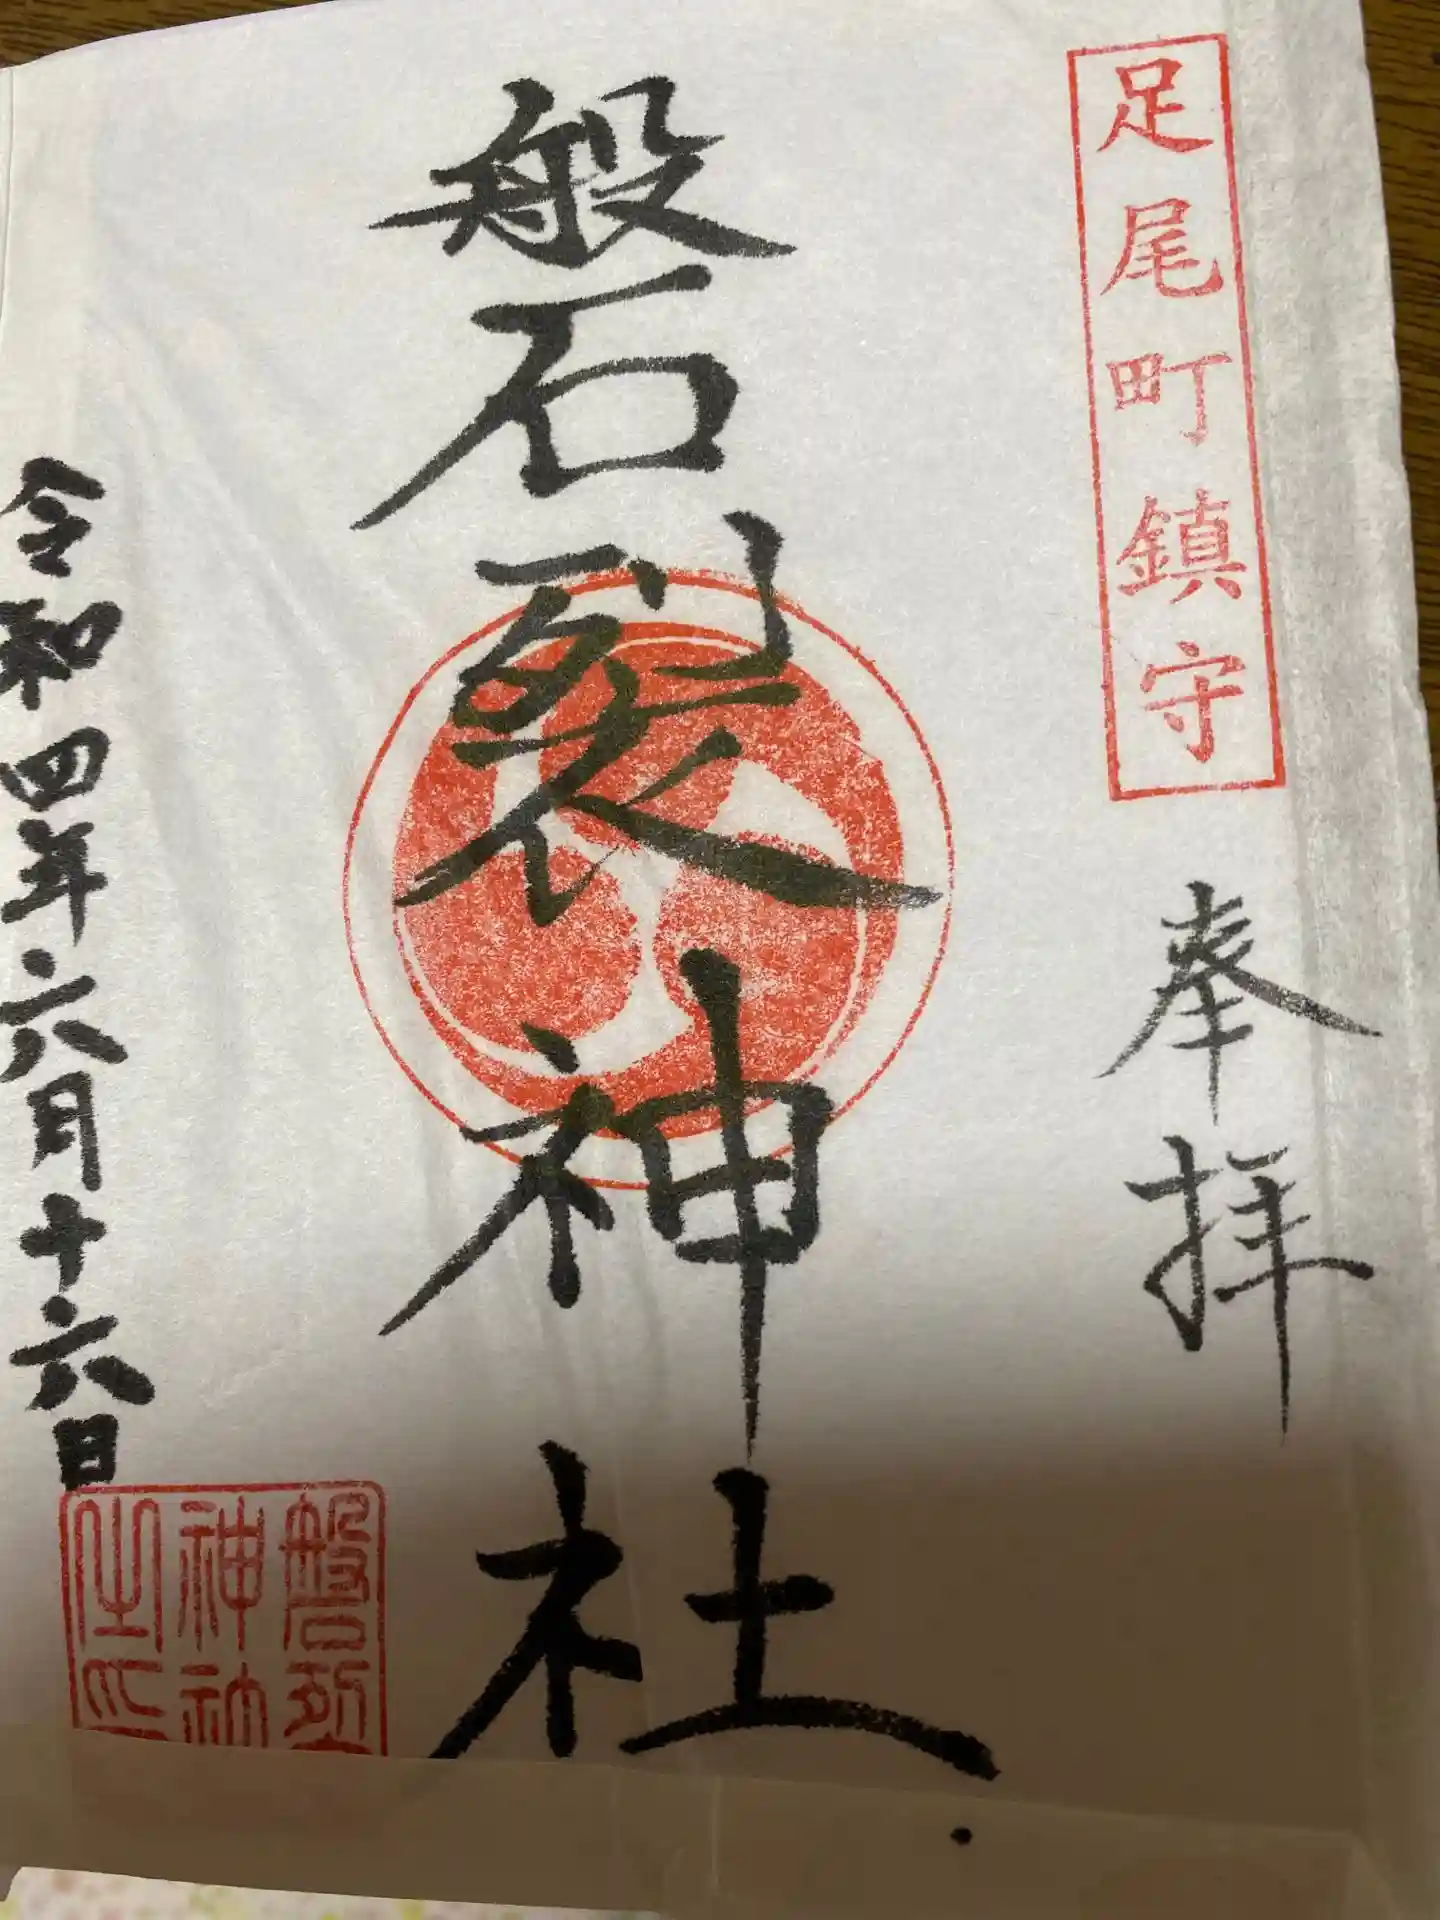 足尾町鎮守
奉拝
磐裂神社
令和四年六月十六日
磐裂
神社
之印